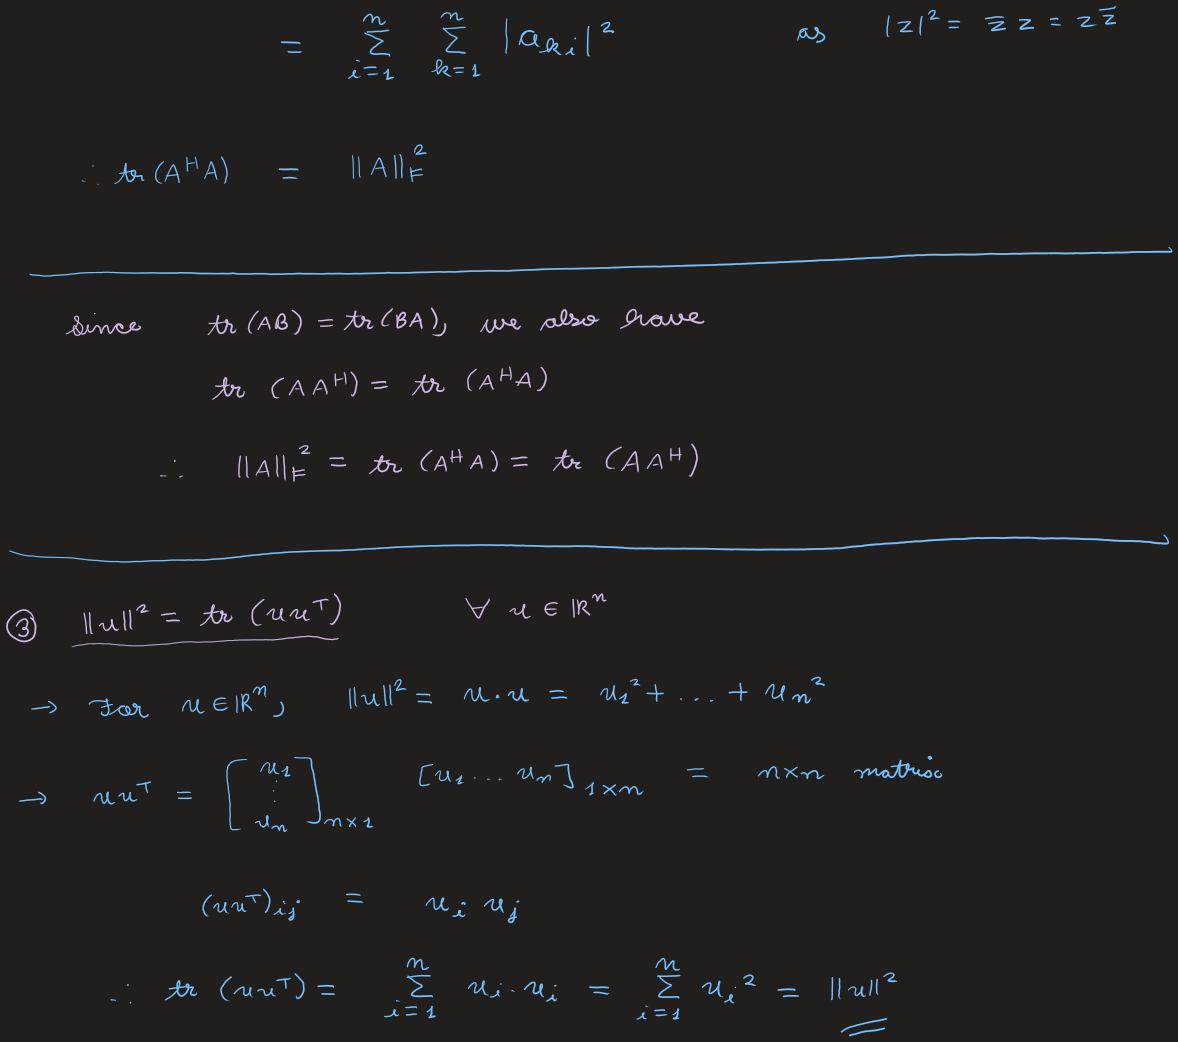 = ∑_{i=1}^{n} ∑_{k=1}^{n} |a_{ki}|² as |z|² = z̄ z = z z̄
∴ tr (Aᴴ A) = ||A||_F²
Since tr (AB) = tr (BA), we also have
tr (A Aᴴ) = tr (Aᴴ A)
∴ ||A||_F² = tr (Aᴴ A) = tr (A Aᴴ)
③ ||u||² = tr (uuᵀ) ∀ u ∈ ℝⁿ
→ For u ∈ ℝⁿ, ||u||² = u · u = u₁² + ... + uₙ²
→ uuᵀ = [u₁ ⋮ uₙ]_{n×1} [u₁ ... uₙ]_{1×n} = n×n matrix
(uuᵀ)_{ij} = u_i u_j
∴ tr (uuᵀ) = ∑_{i=1}^{n} u_i · u_i = ∑_{i=1}^{n} u_i² = ||u||²